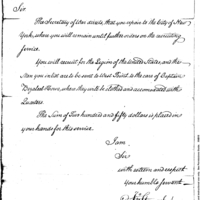 Sir
The Secretary of War directs, that you repair to the City of New
York, where you will remain until further orders on the recruiting
service.
You will recruit for the Legion of the United States, and the
Men you enlist are to be sent to West Point to the care of Captain
where they will be clothed and accommodated with
Quarters.
The Sum of Two hundred and fifty dollars is placed in
your hands for this service.
I am
Sir
with esteem and respect
your humble servant